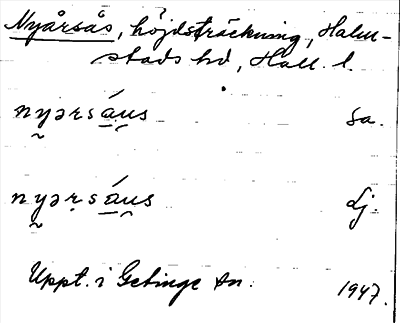 Nyårsås, höjdsträckning, Halm-
stads hd, Hall. l.
n y̰ ə r s á̱ ṷ s sa.
n y̰ ə ṛ s á̱ ṷ s dj.
Uppt. i Getinge sn. 1947.